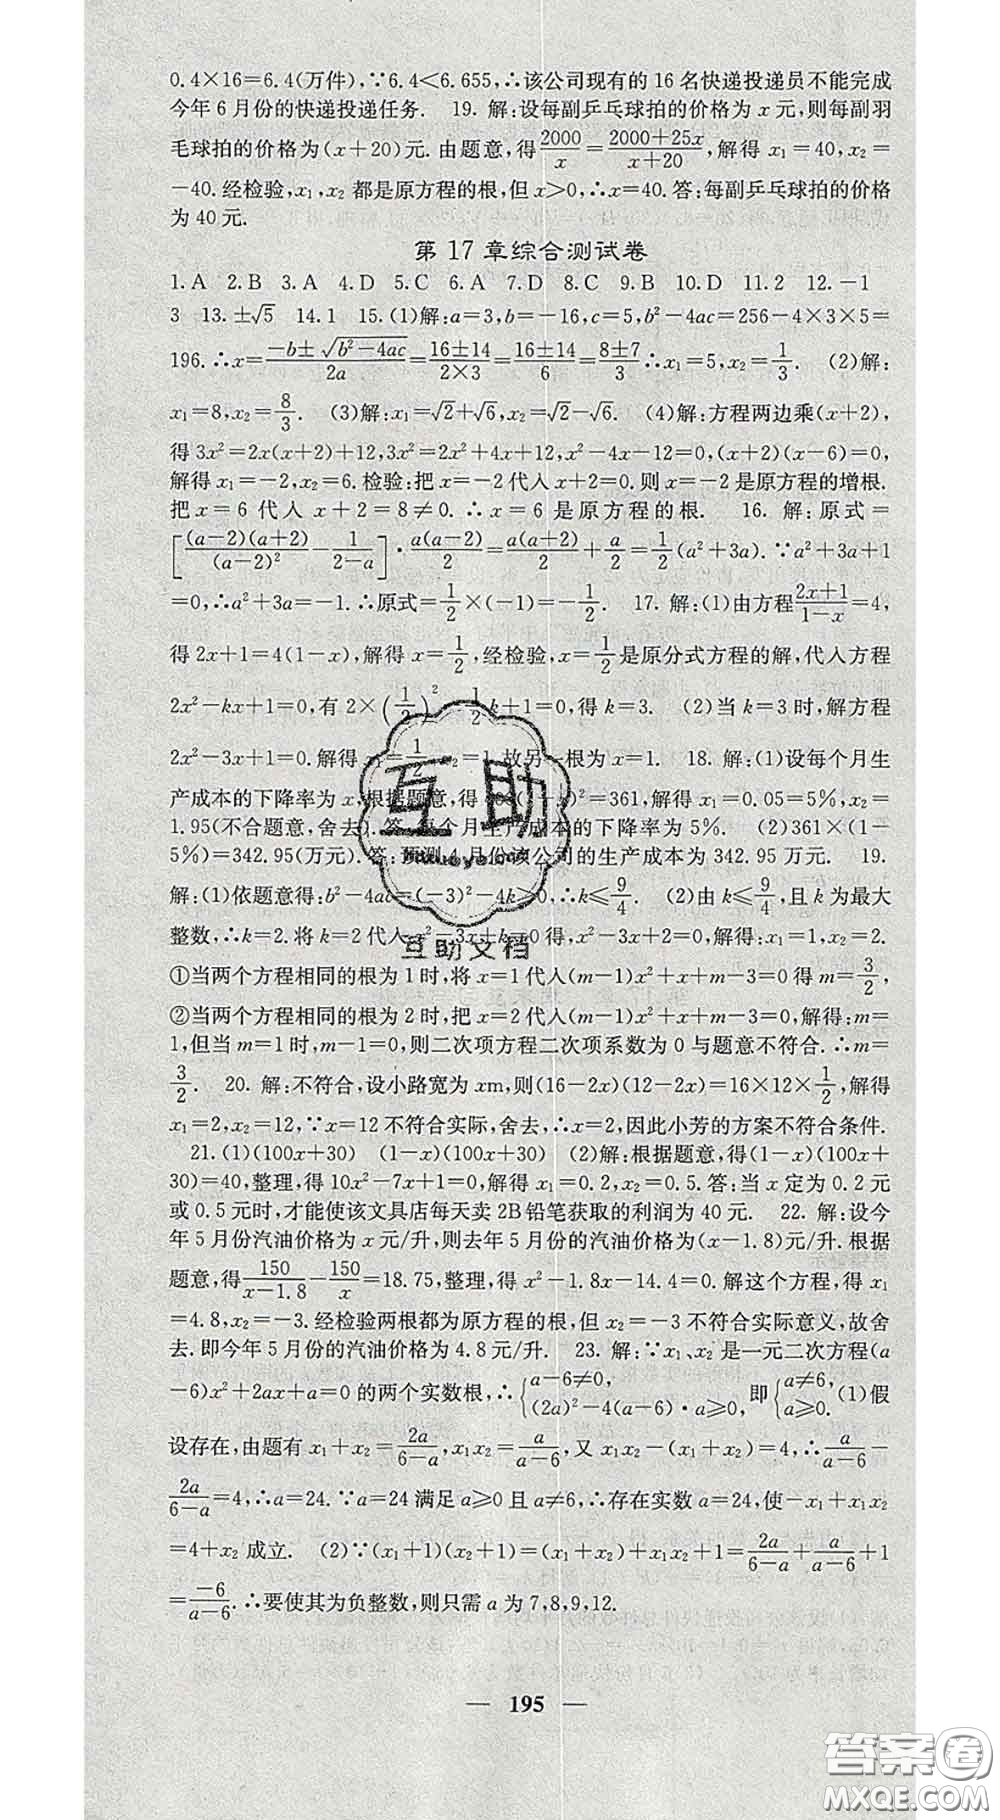 0.4×16=6.4(万件),∵6.4<6.655,∴该公司现有的16名快递投递员不能完成
今年6月份的快递投递任务. 19. 解:设每副乒乓球拍的价格为x元,则每副羽
毛球拍的价格为(x+20)元.由题意,得2000/x=(2000+25x)/(x+20),解得x₁=40,x₂=
-40.经检验,x₁,x₂都是原方程的根,但x>0,∴x=40.答:每副乒乓球拍的价格
为40元.
第17章综合测试卷
1.A 2.B 3.A 4.D 5.C 6.A 7.D 8.C 9.B 10.D 11.2 12.-1
3 13.±√5 14.1 15.(1)解:a=3,b=-16,c=5,b²-4ac=256-4×3×5=
196.∴x=(-b±√(b²-4ac))/2a=(16±14)/(2×3)=(16±14)/6=(8±7)/3∴x₁=5,x₂=1/3. (2)解:
x₁=8,x₂=8/3. (3)解:x₁=√2+√6,x₂=√2-√6. (4)解:方程两边乘(x+2),
得3x²=2x(x+2)+12,3x²=2x²+4x+12,x²-4x-12=0,(x+2)(x-6)=0,
解得x₁=-2,x₂=6.检验:把x=-2代入x+2=0.则x=-2是原方程的增根.
把x=6代入x+2=8≠0.∴x=6是原方程的根. 16. 解:原式=
[(a-2)(a+2)/(a-2)²-1/(2-a)]·a(a-2)/2=a(a+2)/2+a/2=1/2(a²+3a).∵a²+3a+1
=0,∴a²+3a=-1.∴原式=1/2×(-1)=-1/2. 17. 解:(1)由方程(2x+1)/(1-x)=4,
得2x+1=4(1-x),解得x=1/2,经检验,x=1/2是原分式方程的解,代入方程
2x²-kx+1=0,有2×(1/2)²-1/2k+1=0,得k=3. (2)当k=3时,解方程
2x²-3x+1=0.解得x₁=1/2,x₂=1.故另一根为x=1. 18. 解:(1)设每个月生
产成本的下降率为x,根据题意,得400(1-x)²=361,解得x₁=0.05=5%,x₂=
1.95(不合题意,舍去).答:每个月生产成本的下降率为5%. (2)361×(1-
5%)=342.95(万元).答:预测4月份该公司的生产成本为342.95万元. 19.
解:(1)依题意得:b²-4ac=(-3)²-4k≥0,∴k≤9/4. (2)由k≤9/4,且k为最大
整数,∴k=2.将k=2代入x²-3x+k=0得,x²-3x+2=0解得:x₁=1,x₂=2.
①当两个方程相同的根为1时,将x=1代入(m-1)x²+x+m-3=0得m=3/2,
②当两个方程相同的根为2时,把x=2代入(m-1)x²+x+m-3=0,解得:m=
1,但当m=1时,m-1=0,则二次项方程二次项系数为0与题意不符合.∴m=
3/2. 20. 解:不符合,设小路宽为xm,则(16-2x)(12-2x)=16×12×1/2,解得
x₁=2,x₂=12,∵x=12不符合实际,舍去,∴x=2,因此小芳的方案不符合条件.
21.(1)(100x+30) (1-x)(100x+30) (2)解:根据题意,得(1-x)(100x+
30)=40,整理,得10x²-7x+1=0,解得x₁=0.2,x₂=0.5.答:当x定为0.2元
或0.5元时,才能使该文具店每天卖2B铅笔获取的利润为40元. 22. 解:设今
年5月份汽油价格为x元/升,则去年5月份的汽油价格为(x-1.8)元/升.根据
题意,得150/(x-1.8)-150/x=18.75,整理,得x²-1.8x-14.4=0.解这个方程,得x₁
=4.8,x₂=-3.经检验两根都为原方程的根,但x₂=-3不符合实际意义,故舍
去.即今年5月份的汽油价格为4.8元/升. 23. 解:∵x₁、x₂是一元二次方程(a
-6)x²+2ax+a=0的两个实数根,∴{a-6≠0,(2a)²-4(a-6)·a≥0, 即{a≠6,a≥0.(1)假
设存在,由题有x₁+x₂=2a/(6-a),x₁x₂=a/(a-6),又x₁x₂-(x₁+x₂)=4,∴a/(a-6)-
2a/(6-a)=4,∴a=24.∵a=24满足a≥0且a≠6,∴存在实数a=24,使-x₁+x₁x₂
=4+x₂成立. (2)∵(x₁+1)(x₂+1)=(x₁+x₂)+x₁x₂+1=2a/(6-a)+a/(a-6)+1
=-6/(a-6).∴要使其为负整数,则只需a为7,8,9,12.
— 195 —
互助
互助文档
答案卷
MXQE.COM